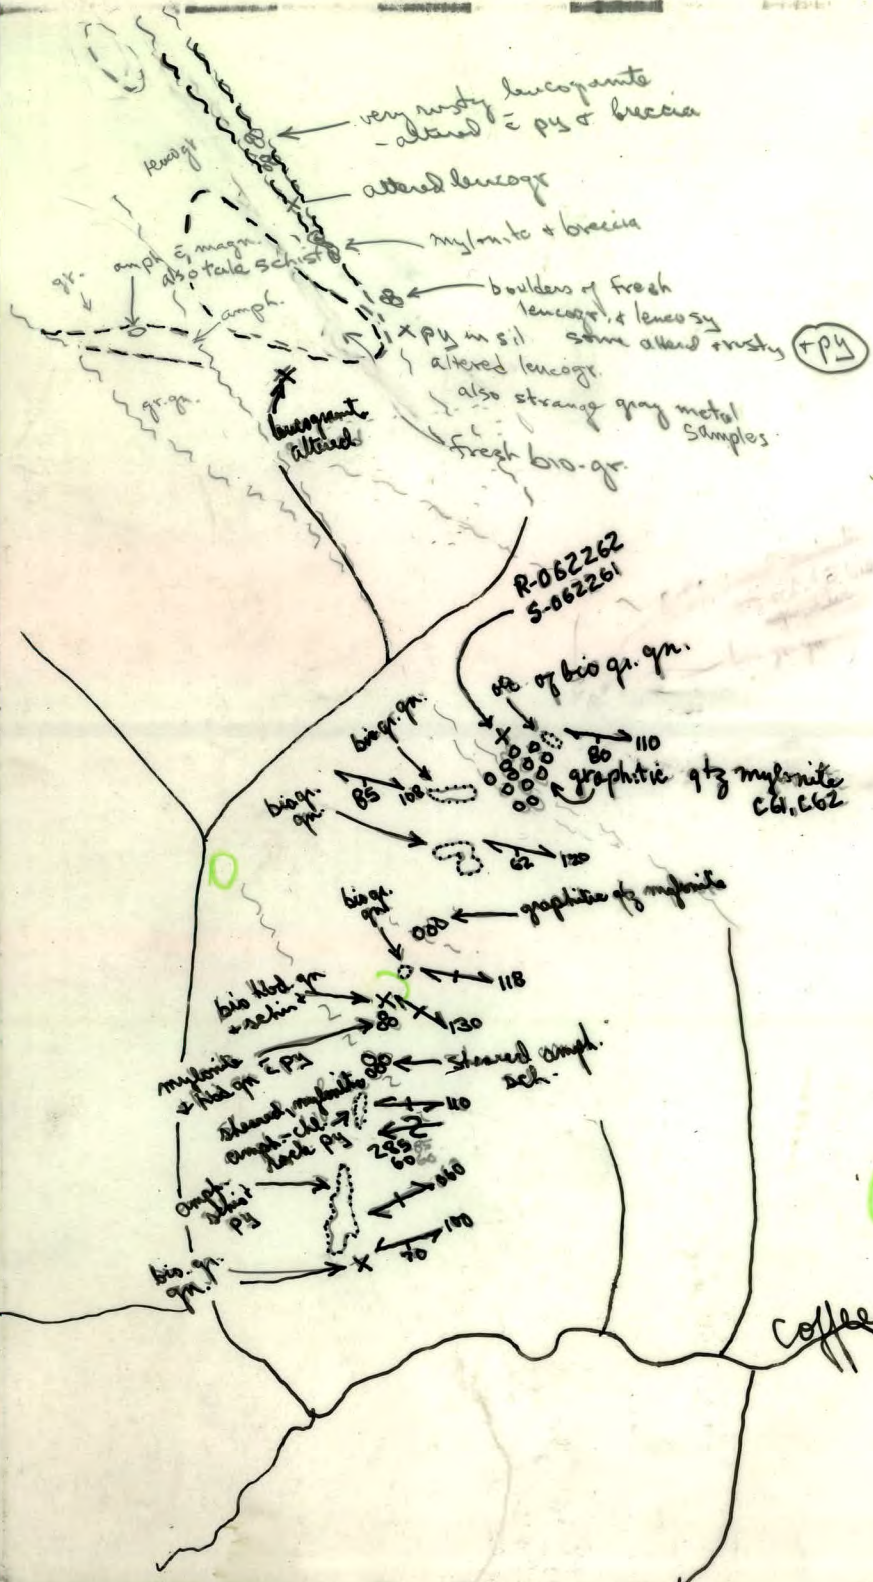 very rusty leucogranite
- altered c̄ py & breccia
leucogr
altered leucogr
mylonite & breccia
amph c̄ magn.
also talc schist
gr.
amph.
boulders of fresh
leucogr. & leucosy
some altered & rusty + py
x py in sil
altered leucogr.
also strange gray metal
samples.
gr. gn.
leucogranite
altered
fresh bio-gr.
R-062262
S-062261
of bio gr. gn.
bio gr. gn.
110
80
graphitic qtz mylonite
C61, C62
85 108
bio gr.
gn.
62 120
bio gr.
gn.
graphitic qtz mylonite
118
bio hbd gn
+ schist
130
mylonite
+ hbd gn c̄ py
sheared amph.
sch.
sheared, mylonitic
amph-chl
rock py
110
285
60
amph-
schist
py
060
100
70
bio. gr.
gn.
Coffee